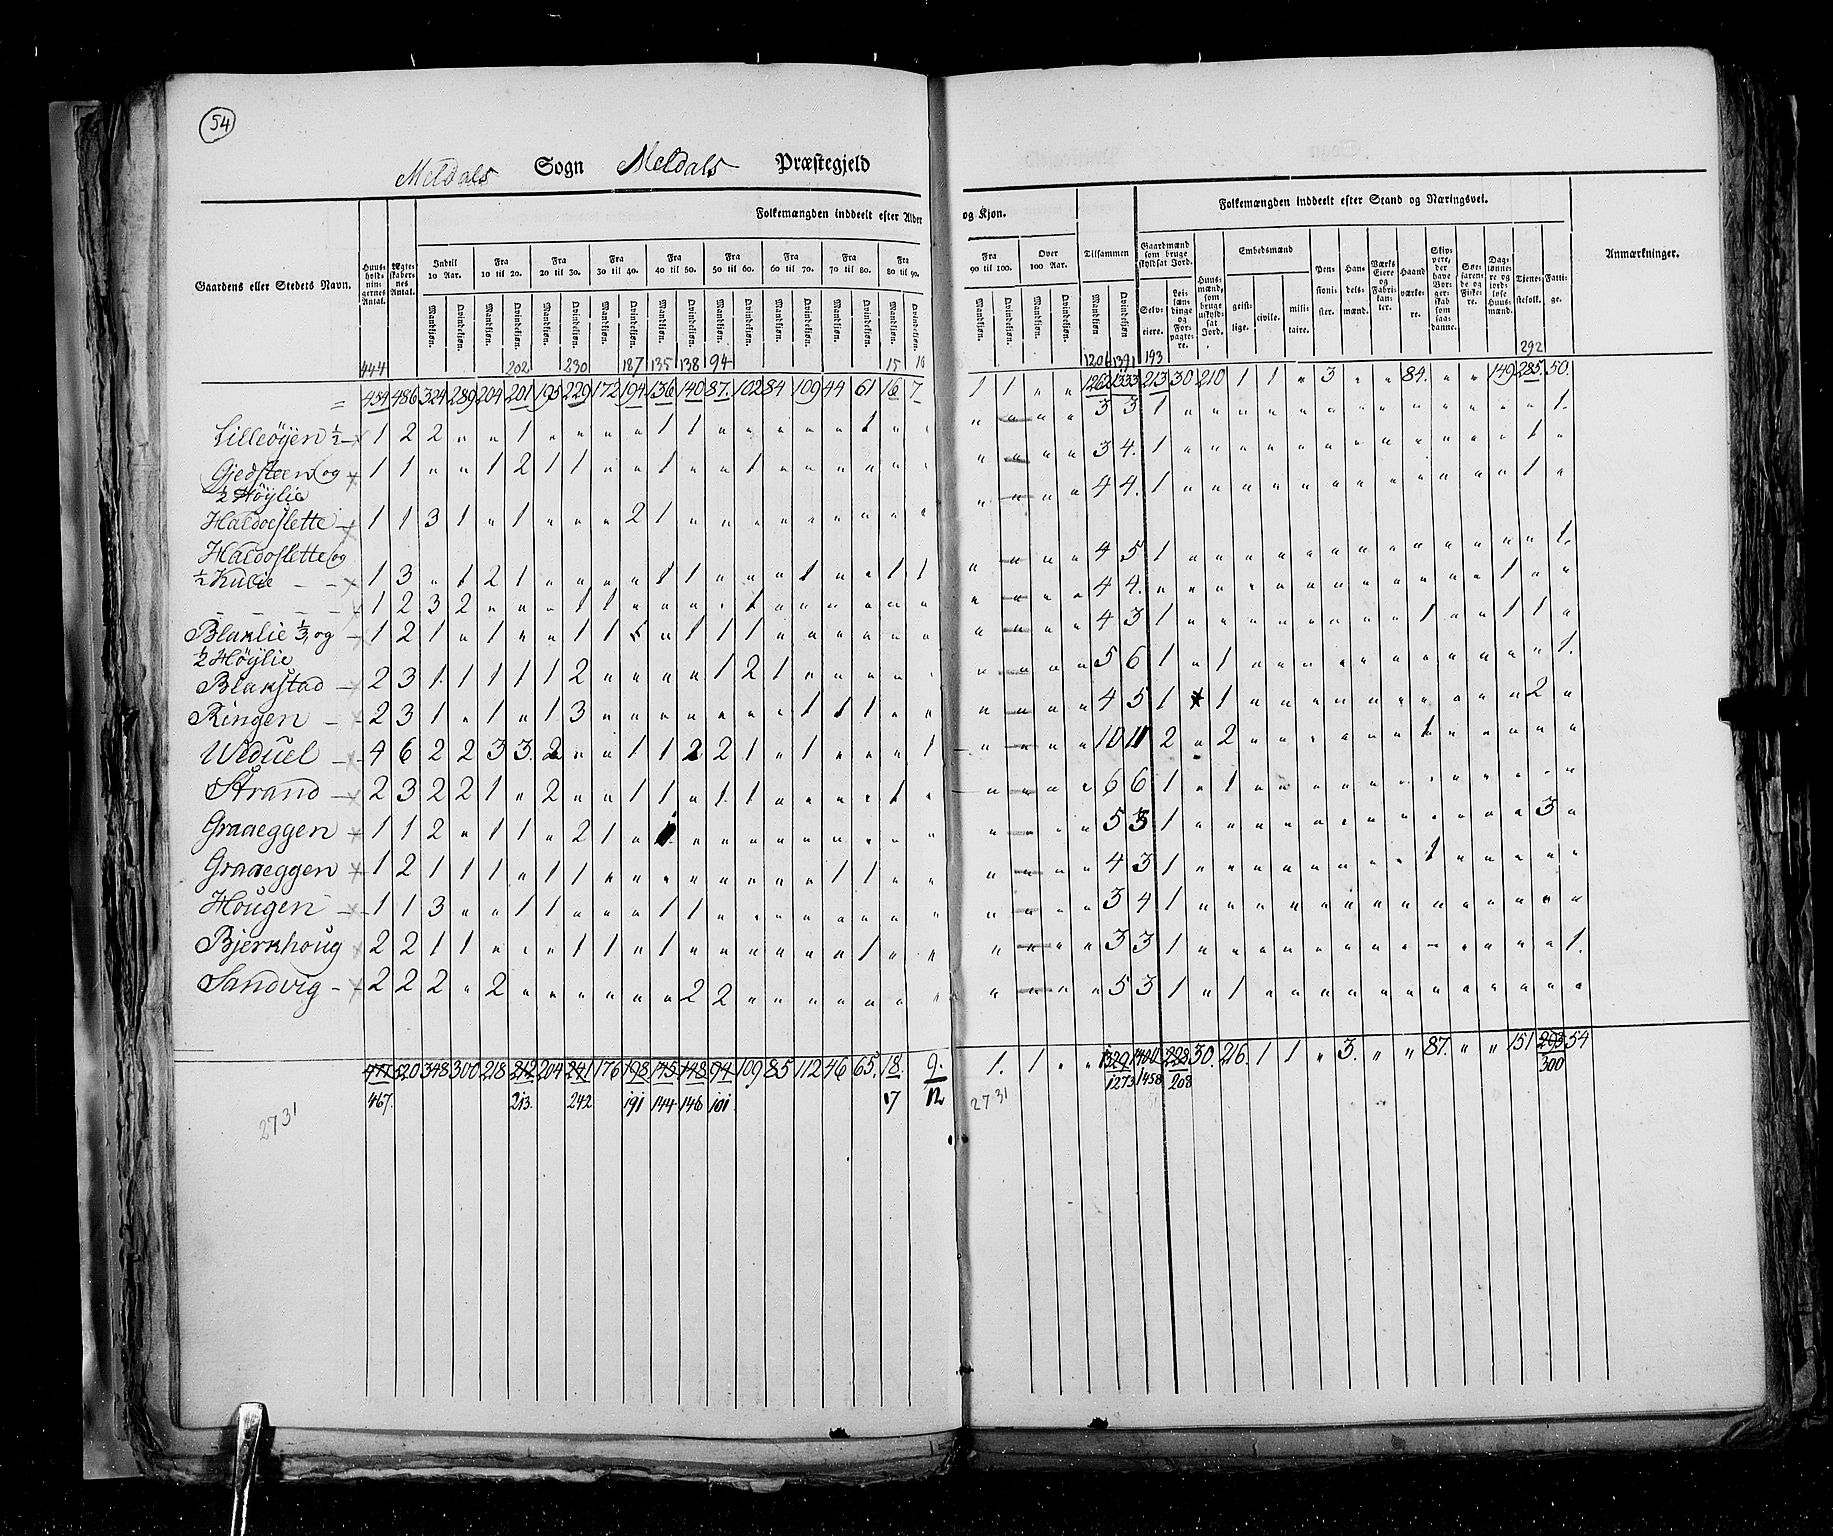 54
Meldals Sogn Meldals Præstegjeld
Gaardens eller Stedets Navn.
Huus-holdnin-gernes Antal.
Ægte-skaber-nes Antal.
Folkemængden inddeelt efter Alder
og Kjøn.
Folkemængden inddeelt efter Stand og Næringsvei.
Anmærkninger.
Indtil 10 Aar. Fra 10 til 20. Fra 20 til 30. Fra 30 til 40. Fra 40 til 50. Fra 50 til 60. Fra 60 til 70. Fra 70 til 80. Fra 80 til 90.
Fra 90 til 100. Over 100 Aar. Tilsammen
Gaardmænd som bruge skyldsat Jord.
Huus-mænd, som bruge uskyld-sat Jord.
Embedsmænd
Pen-sioni-ster. Han-dels-mænd. Værks Eiere og Fabri-kan-ter. Haand værke-re. Skip-pere, der have Bor-ger-skab som saa-danne. Søe-farende og Fiskere. Dag-lønne-re og jord-løse Huus-mænd. Tjene-stefolk. Fatti-ge.
Mandkjøn. Qvindekjøn. Mandkjøn. Qvindekjøn. Mandkjøn. Qvindekjøn. Mandkjøn. Qvindekjøn. Mandkjøn. Qvindekjøn. Mandkjøn. Qvindekjøn. Mandkjøn. Qvindekjøn. Mandkjøn. Qvindekjøn. Mandkjøn. Qvindekjøn.
Mandkjøn. Qvindekjøn. Mandkjøn. Qvindekjøn. Mandkjøn Qvindekjøn.
Selv-eiere. Lei-lændinge og For-pagte-re. geist-lige. civile. mili-taire.
444 202 230 187 135 138 94 15 10 1206 1391 193 292
454 486 324 289 204 201 195 229 172 194 136 140 87. 102 84 109 44 61 16 7 1 1 " " 1262 1333 213 30 210 1 1 " 3 " " 84. " " 149 285. 50.
Lilleøyen ½ 1 2 2 " " 1 " " " " 1 1 " " " " " 1 " " " " " " 3 3 1 " " " " " " " " " " " " " 1.
Gjedsteen og 1 1 " " 1 2 1 1 " " 1 " " 1 " " " " " " " " " " 3 4. 1 " " " " " " " " " " " " 1 "
½ Høylie
Haldoeslette 1 1 3 1 " 1 " " " 2 1 " " " " " " " " " " " " " 4 4. 1 " " " " " " " " " " " " 1 "
Haldoslette og
½ Kulie 1 3 " 1 2 1 " " " " 1 1 " " " 1 " " 1 1 " " " " 4 5 1 " " " " " " " " " " " " " 1.
1 2 3 2 " " " 1 1 " " " " 1 " " " " " " " " " " 4 4. " " " " " " " " " " " " 1 " "
Blaklie ⅓ og 1 2 1 " 1 " " 1 1 " " 1 1 1 " " " " " " " " " " 4 3 1 " " " " " " " " 1 " " 1 1 "
½ Høylie
Blakstad 2 3 1 1 1 1 1 2 " " " " 1 2 1 " " " " " " " " " 5 6 1 " 1 " " " " " " " " " " " 1.
Ringen 2 3 1 " 1 " 1 3 " " " " " " " 1 1 1 " " " " " " 4 5 1 1 " " " " " " " " " " 2 "
Weduel 4 6 2 2 3 3. 2 " " 1 1 2 2 1 " 1 " " " 1 " " " " 10 11 2 " 2 " " " " " " 1 " " " " "
Strand 2 3 2 2 1 " 2 " " 1 1 " 1 1 " " " " 1 " " " " " 6 6 1 " 1 " " " " " " " " " " " "
Graaeggen 1 1 2 " 1 1 " 2 1 " 1 " " " " " " " " " " " " " 5 3 1 " " " " " " " " " " " " 3 "
Graaeggen 1 2 1 1 1 " 1 1 " " " " " " " " 1 1 " " " " " " 4 3 1 " " " " " " " " 1 " " " " "
Hougen 1 1 3 " " 1 1 " " " 1 1 " " " " " " " " " " " " 3 4 1 " " " " " " " " " " " " " "
Bjerkhoug 2 2 1 1 " " " 1 1 1 1 " " " " " " 1 " " " " " " 3 3 1 " " " " " " " " " " " " " 1.
Sandvig 2 2 2 " 2 " " " " " " 2 2 " " " " " " " " " " " 5 3 1 " 1 " " " " " " " " " " " "
477 520 348 300 218 212 204 241 176 198 145 148 94. 109 85 112 46 65. 18. 9. 1. 1 " " 1329 1400 228 30. 216. 1 1 " 3. " " 87. " " 151 293 54
467. 213. 242 191 144 146 101. 17 12 1273 1458 208 300
2731 2731